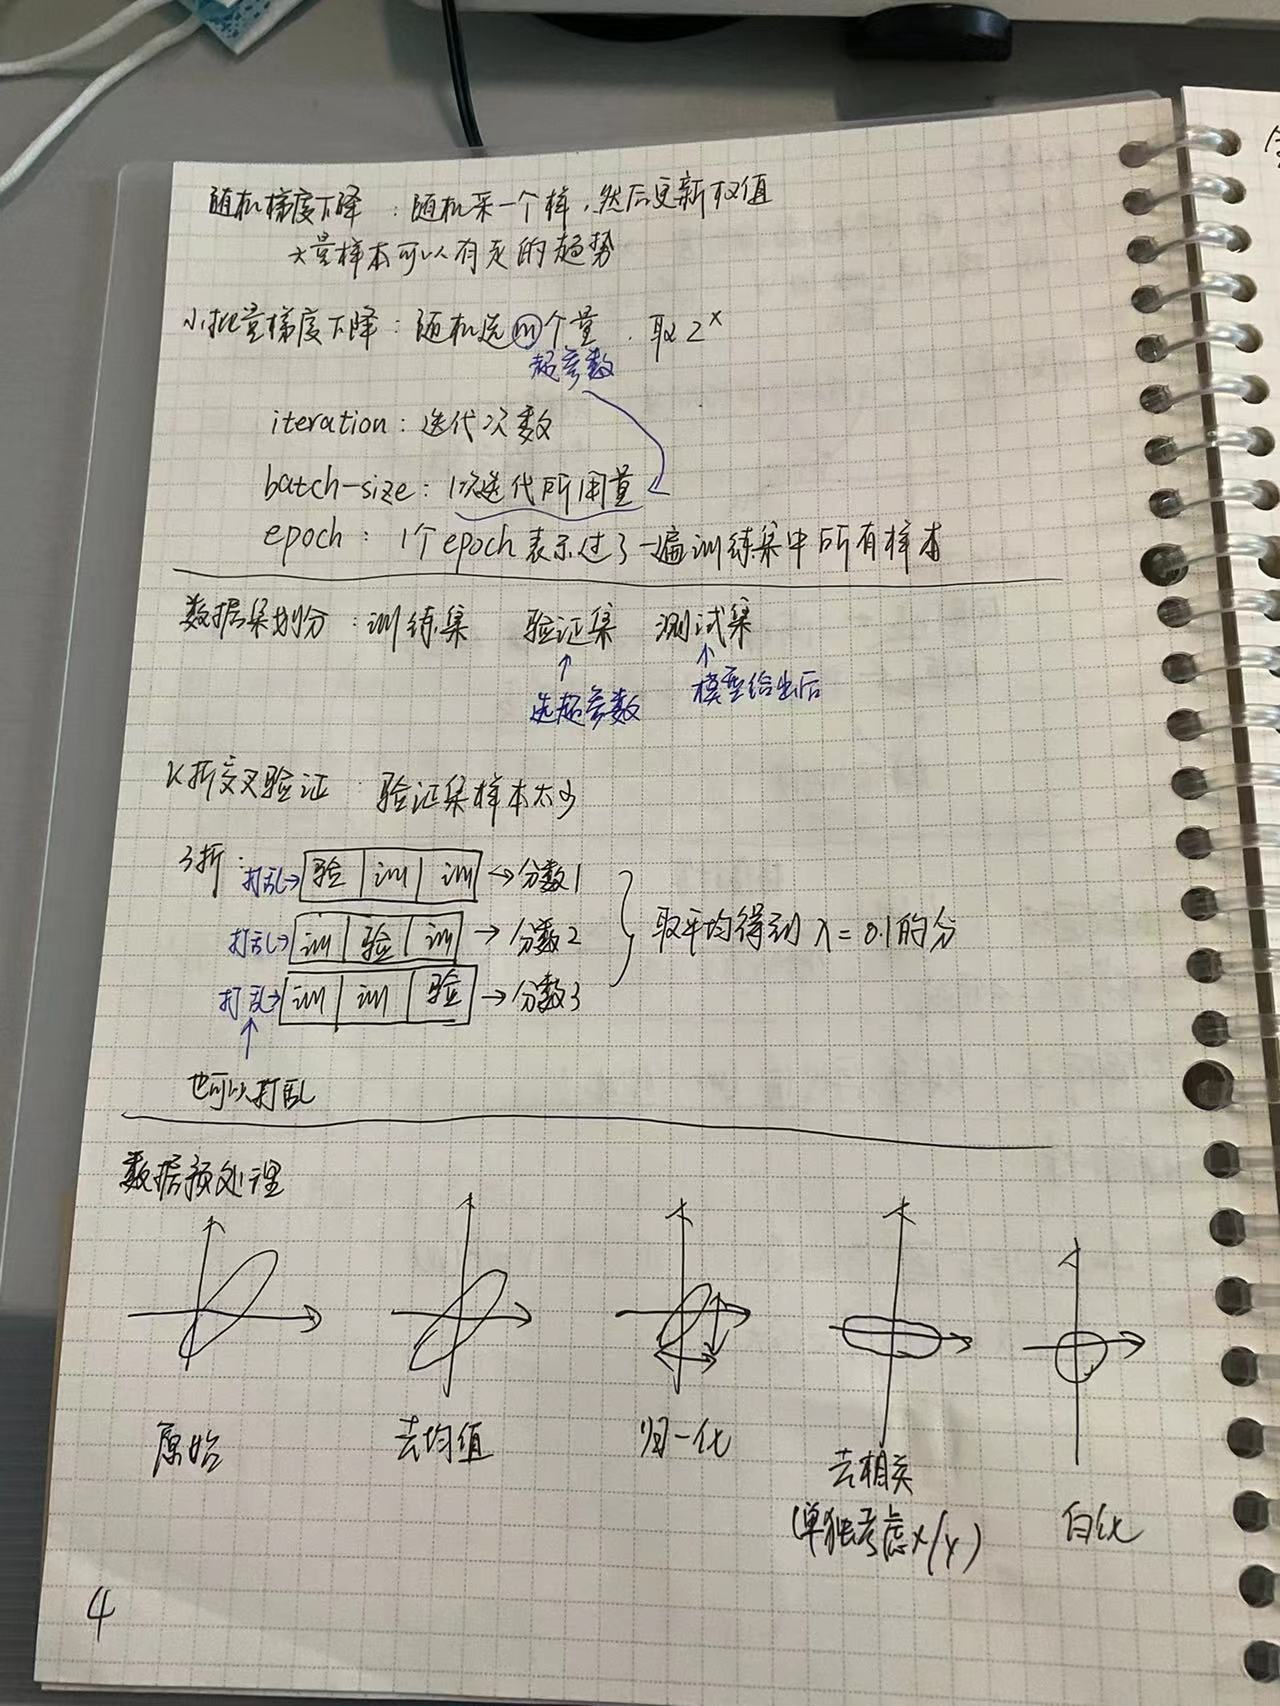 随机梯度下降：随机采一个样，然后更新权值
大量样本可以有走的趋势
小批量梯度下降：随机选m个量，取2^x
超参数
iteration：迭代次数
batch-size：1次迭代所用量
epoch：1个epoch表示过了一遍训练集中所有样本
数据集划分：训练集 验证集 测试集
选超参数 模型给出后
K折交叉验证：验证集样本太少
3折：打乱→ 验 训 训 → 分数1
打乱→ 训 验 训 → 分数2 取平均得到λ=0.1的分
打乱→ 训 训 验 → 分数3
也可以打乱
数据预处理
原始 去均值 归一化 去相关 白化
(单独考虑x/y)
4